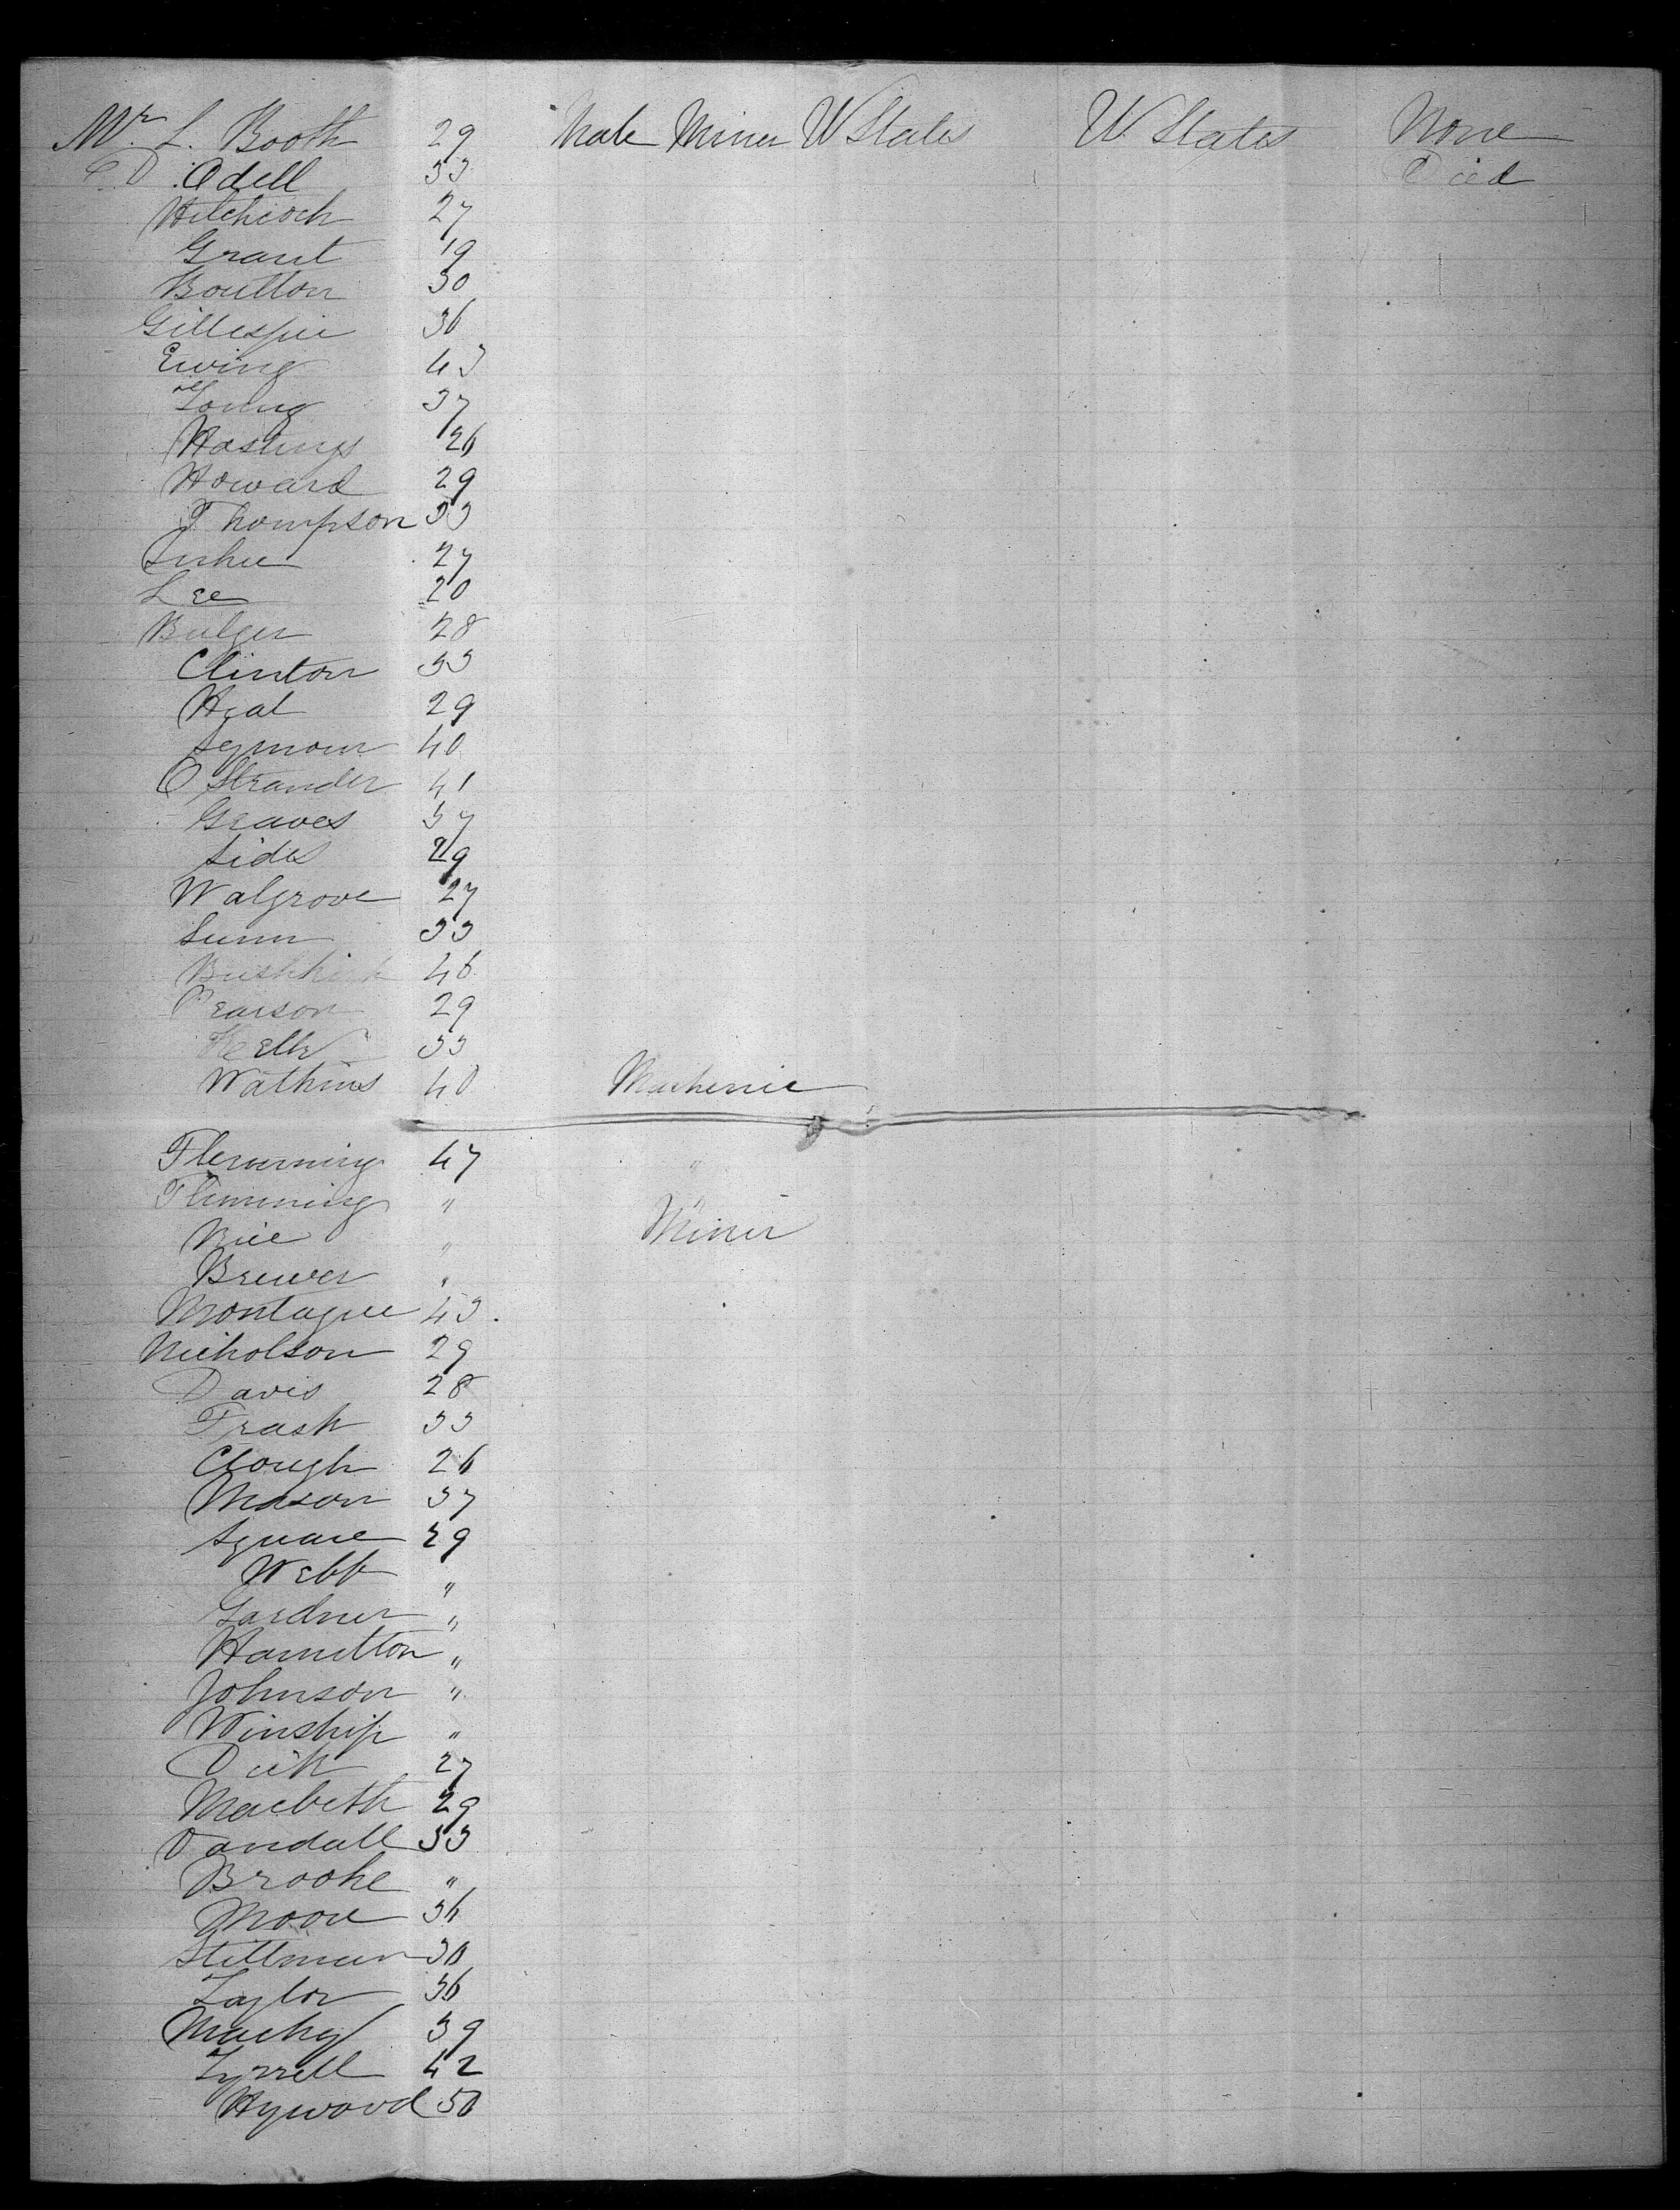 Mr. L. Booth 29 Male Miner U States U States None
Odell 33 Died
Hitchcock 27
Grant 19
Boulton 30
Gillespie 36
Ewing 43
Young 37
Hastings 26
Howard 29
Thompson 33
27
Lee 20
Bulger 28
Clinton 33
Heal 29
Seymour 40
O Strander 41
Graves 37
Sides 29
Walgrove 27
Lunn 33
Bushkirk 46
Pearson 29
Kelly 33
Watkins 40
Flemming 47 "
Flimming " "
Rice " Miner
Brewer "
Montague 43.
Nicholson 29
Davis 28
Trask 33
Clough 26
Mason 37
Square 29
Webb "
Gardner "
Hamilton "
Johnson "
Winship "
Dick 27
Macbeth 29
Vandall 33
Brooke "
Moore 36
Stillman 30
Taylor 36
Macky 39
Tyrrell 42
Hywood 50